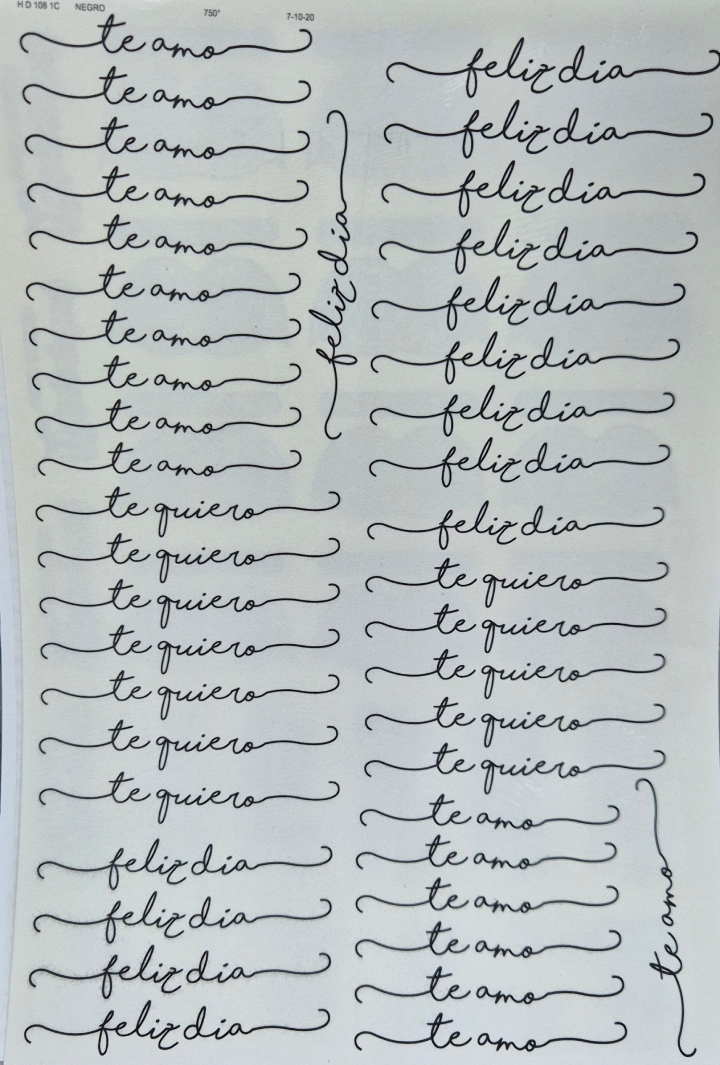 H D 108 1C NEGRO 750° 7-10-20
te amo
te amo
te amo
te amo
te amo
te amo
te amo
te amo
te amo
te amo
te quiero
te quiero
te quiero
te quiero
te quiero
te quiero
te quiero
feliz dia
feliz dia
feliz dia
feliz dia
feliz dia
feliz dia
feliz dia
feliz dia
feliz dia
feliz dia
feliz dia
feliz dia
feliz dia
feliz dia
te quiero
te quiero
te quiero
te quiero
te quiero
te amo
te amo
te amo
te amo
te amo
te amo
te amo